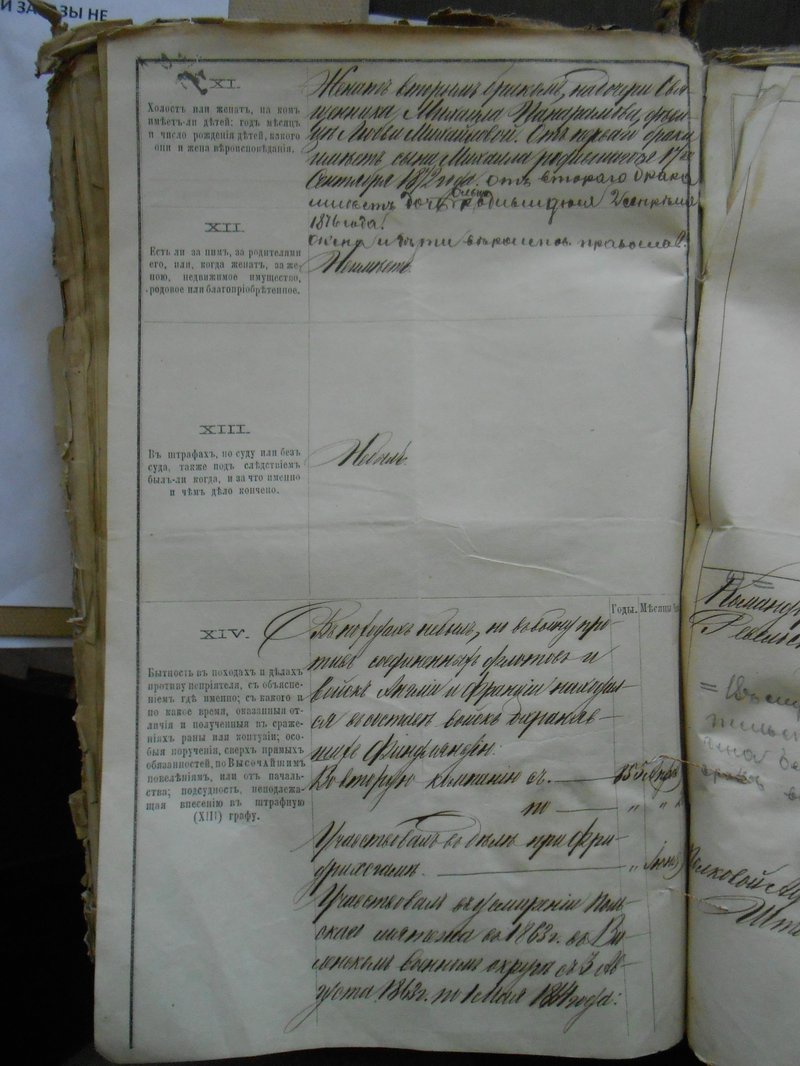 XI.
Холостъ или женатъ, на комъ
имѣетъ-ли дѣтей: годъ мѣсяцъ
и число рожденія дѣтей, какого
они и жена вѣроисповѣданія.
Женатъ вторымъ бракомъ, на дочери Свя-
щенника Михаила
Любви Михайловой. Отъ перваго брака
имѣетъ сына, Михаила родившагося 17го
Сентября 1872 года. отъ втораго брака
имѣетъ дочь Ольгу родившуюся 2
1876 года.
жена и дѣти православ.
XII.
Есть ли за нимъ, за родителями
его, или, когда женатъ, за же-
ною, недвижимое имущество,
родовое или благопріобрѣтенное.
Неимѣетъ.
XIII.
Въ штрафахъ, по суду или безъ
суда, также подъ слѣдствіемъ
былъ-ли когда, и за что именно
и чѣмъ дѣло кончено.
Небылъ.
Годы. Мѣсяцы
XIV.
Бытность въ походахъ и дѣлахъ
противу непріятеля, съ объясне-
ніемъ гдѣ именно; съ какого и
по какое время, оказанныя отл-
ичія и полученныя въ сраже-
ніяхъ раны или контузіи; осо-
быя порученія, сверхъ прямыхъ
обязанностей, по Высочайшимъ
повелѣніямъ, или отъ началь-
ства; подсудность, неподлежа-
щая внесенію въ штрафную
(XIII) графу.
Въ походахъ небылъ, но въ войну про-
тивъ соединенныхъ флотовъ и
войскъ Англіи и Франціи находил-
ся въ составѣ войскъ охраняв-
шихъ Финляндію:
Во вторую компанію съ — 1855
по — „ „ „
Участвовалъ въ дѣлѣ при Фри-
дрихсгамѣ. — „ Іюня
Участвовалъ въ усмиреніи Поль-
скаго мятежа въ 1863 г. въ Ви-
ленскомъ военномъ округѣ съ 3 Ав-
густа 1863 г. по 1 Мая 1864 года:
Команди
Полковой Ад